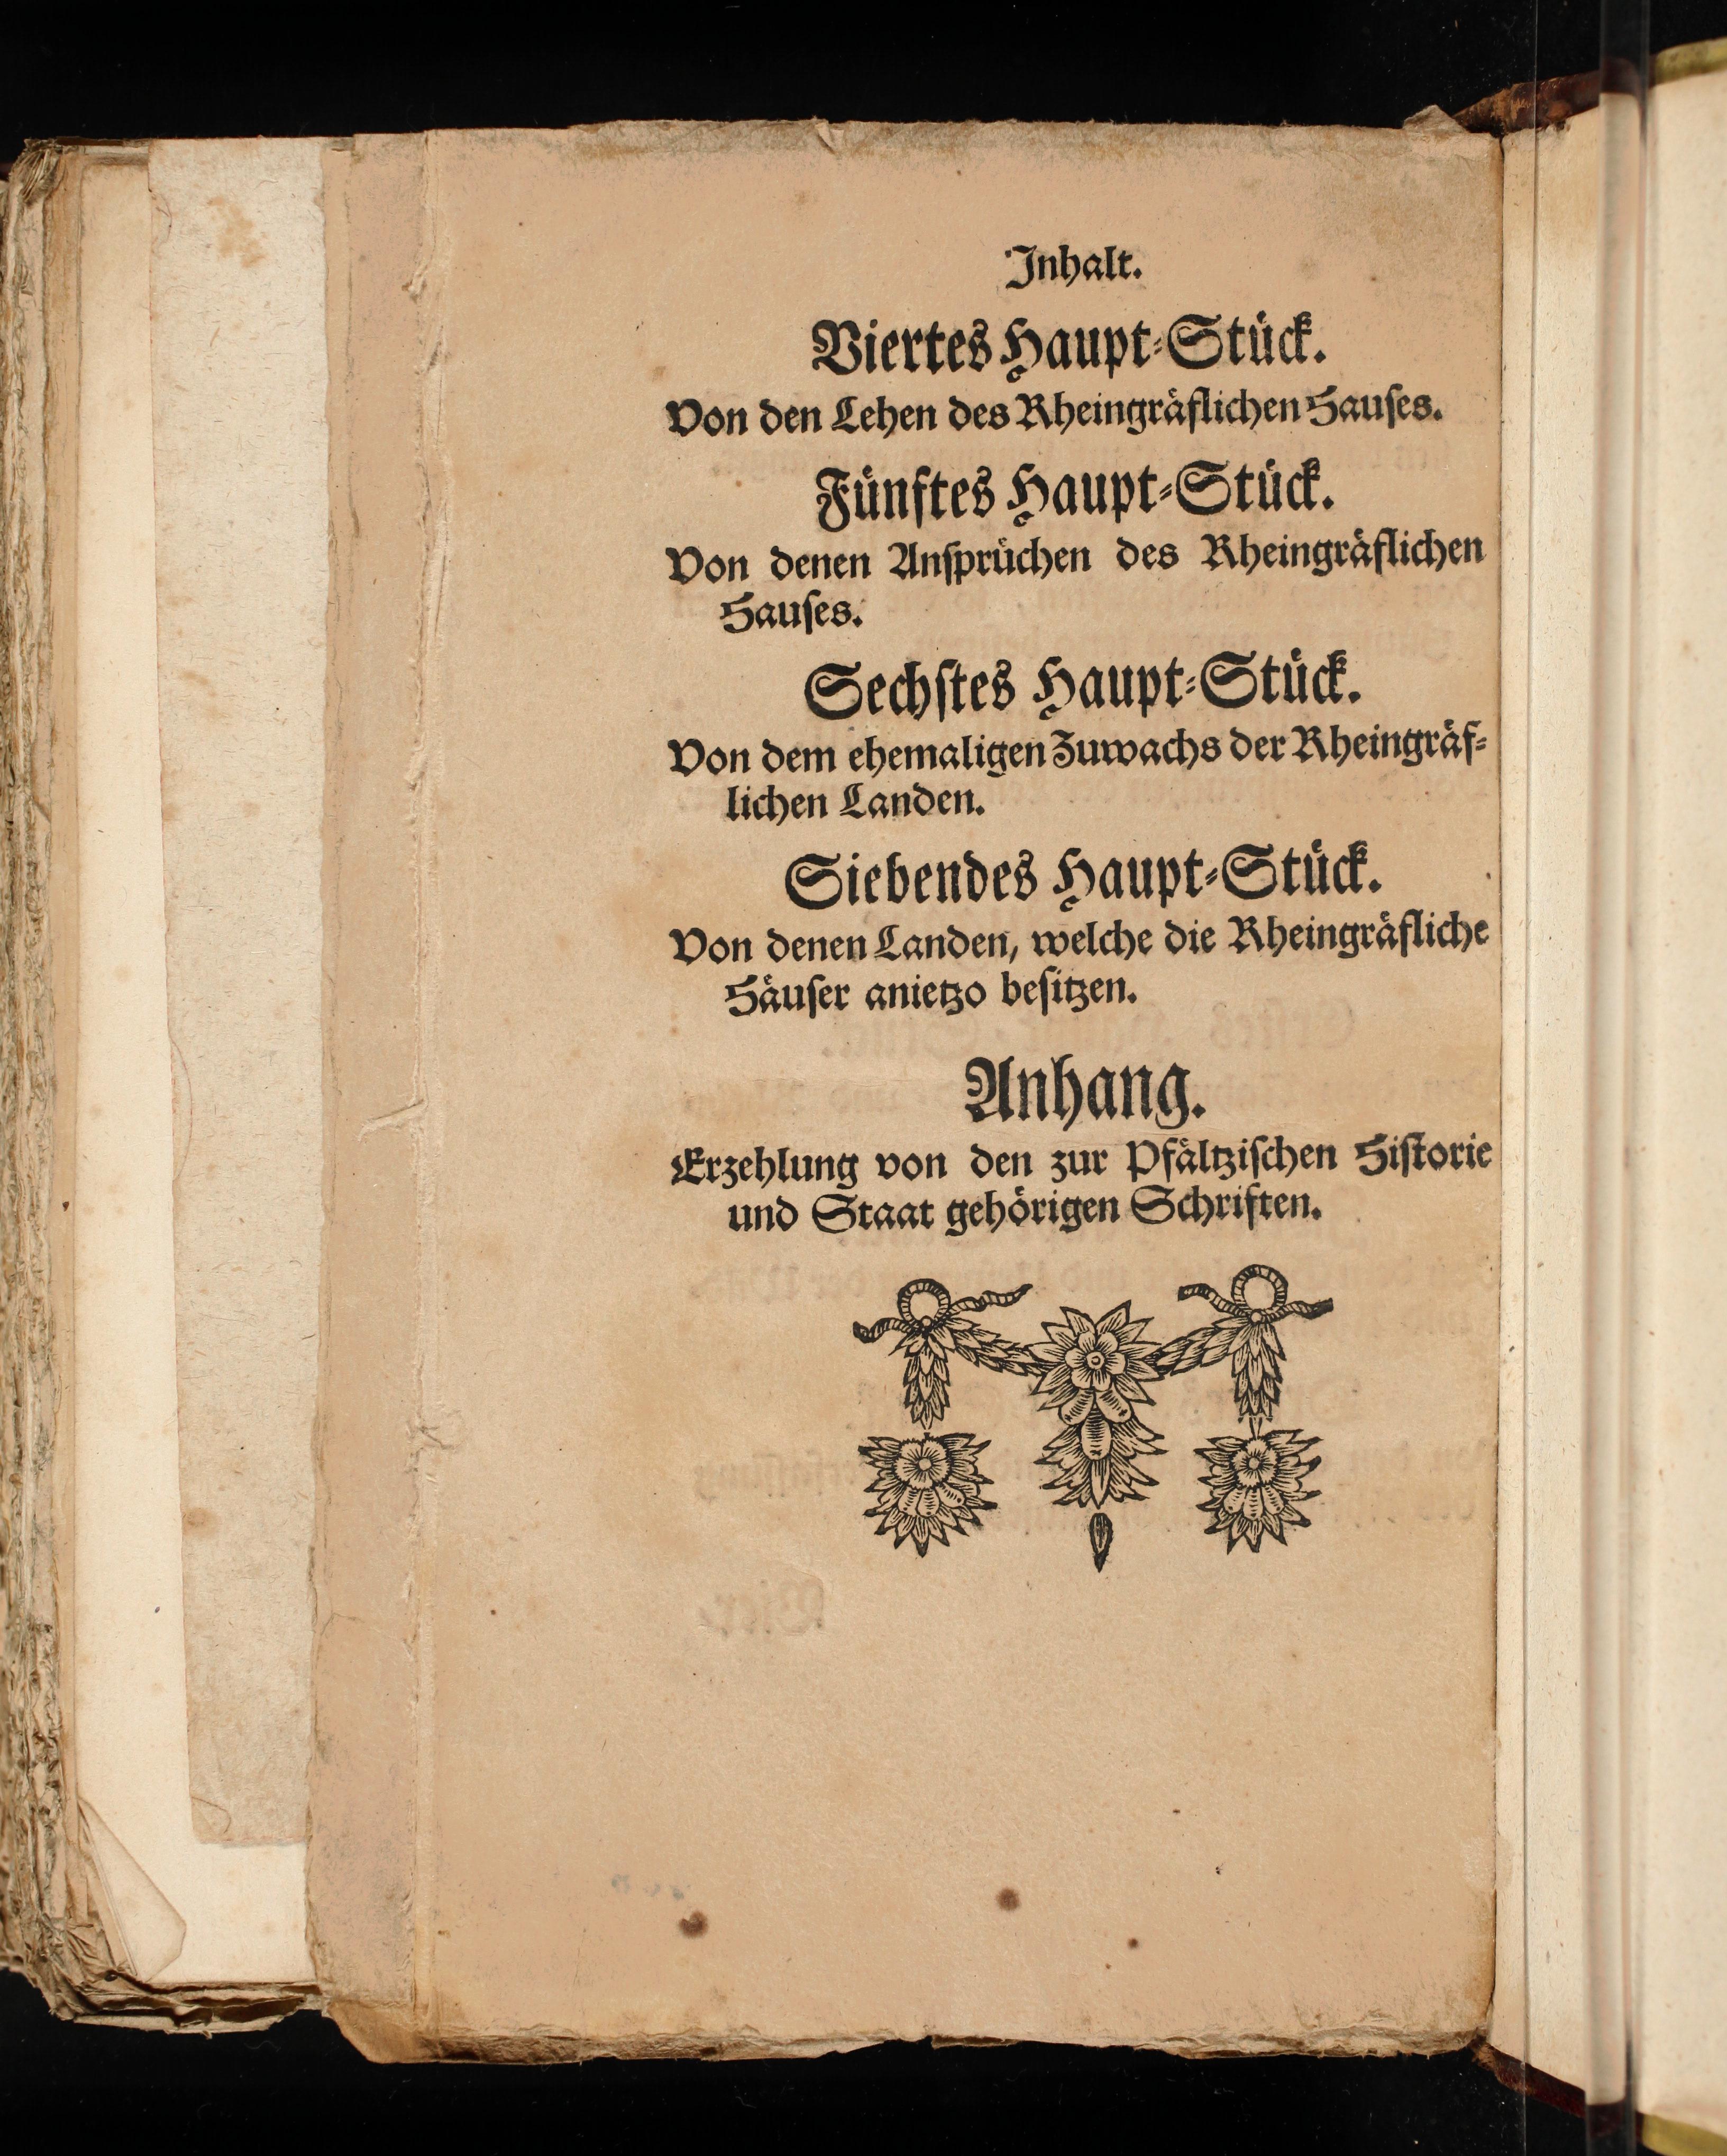 Inhalt.
Viertes Haupt-Stück.
Von den Lehen des Rheingräflichen Hauses.
Fünftes Haupt-Stück.
Von denen Ansprüchen des Rheingräflichen
Hauses.
Sechstes Haupt-Stück.
Von dem ehemaligen Zuwachs der Rheingräf-
lichen Landen.
Siebendes Haupt-Stück.
Von denen Landen, welche die Rheingräfliche
Häuser anietzo besitzen.
Anhang.
Erzehlung von den zur Pfältzischen Historie
und Staat gehörigen Schriften.